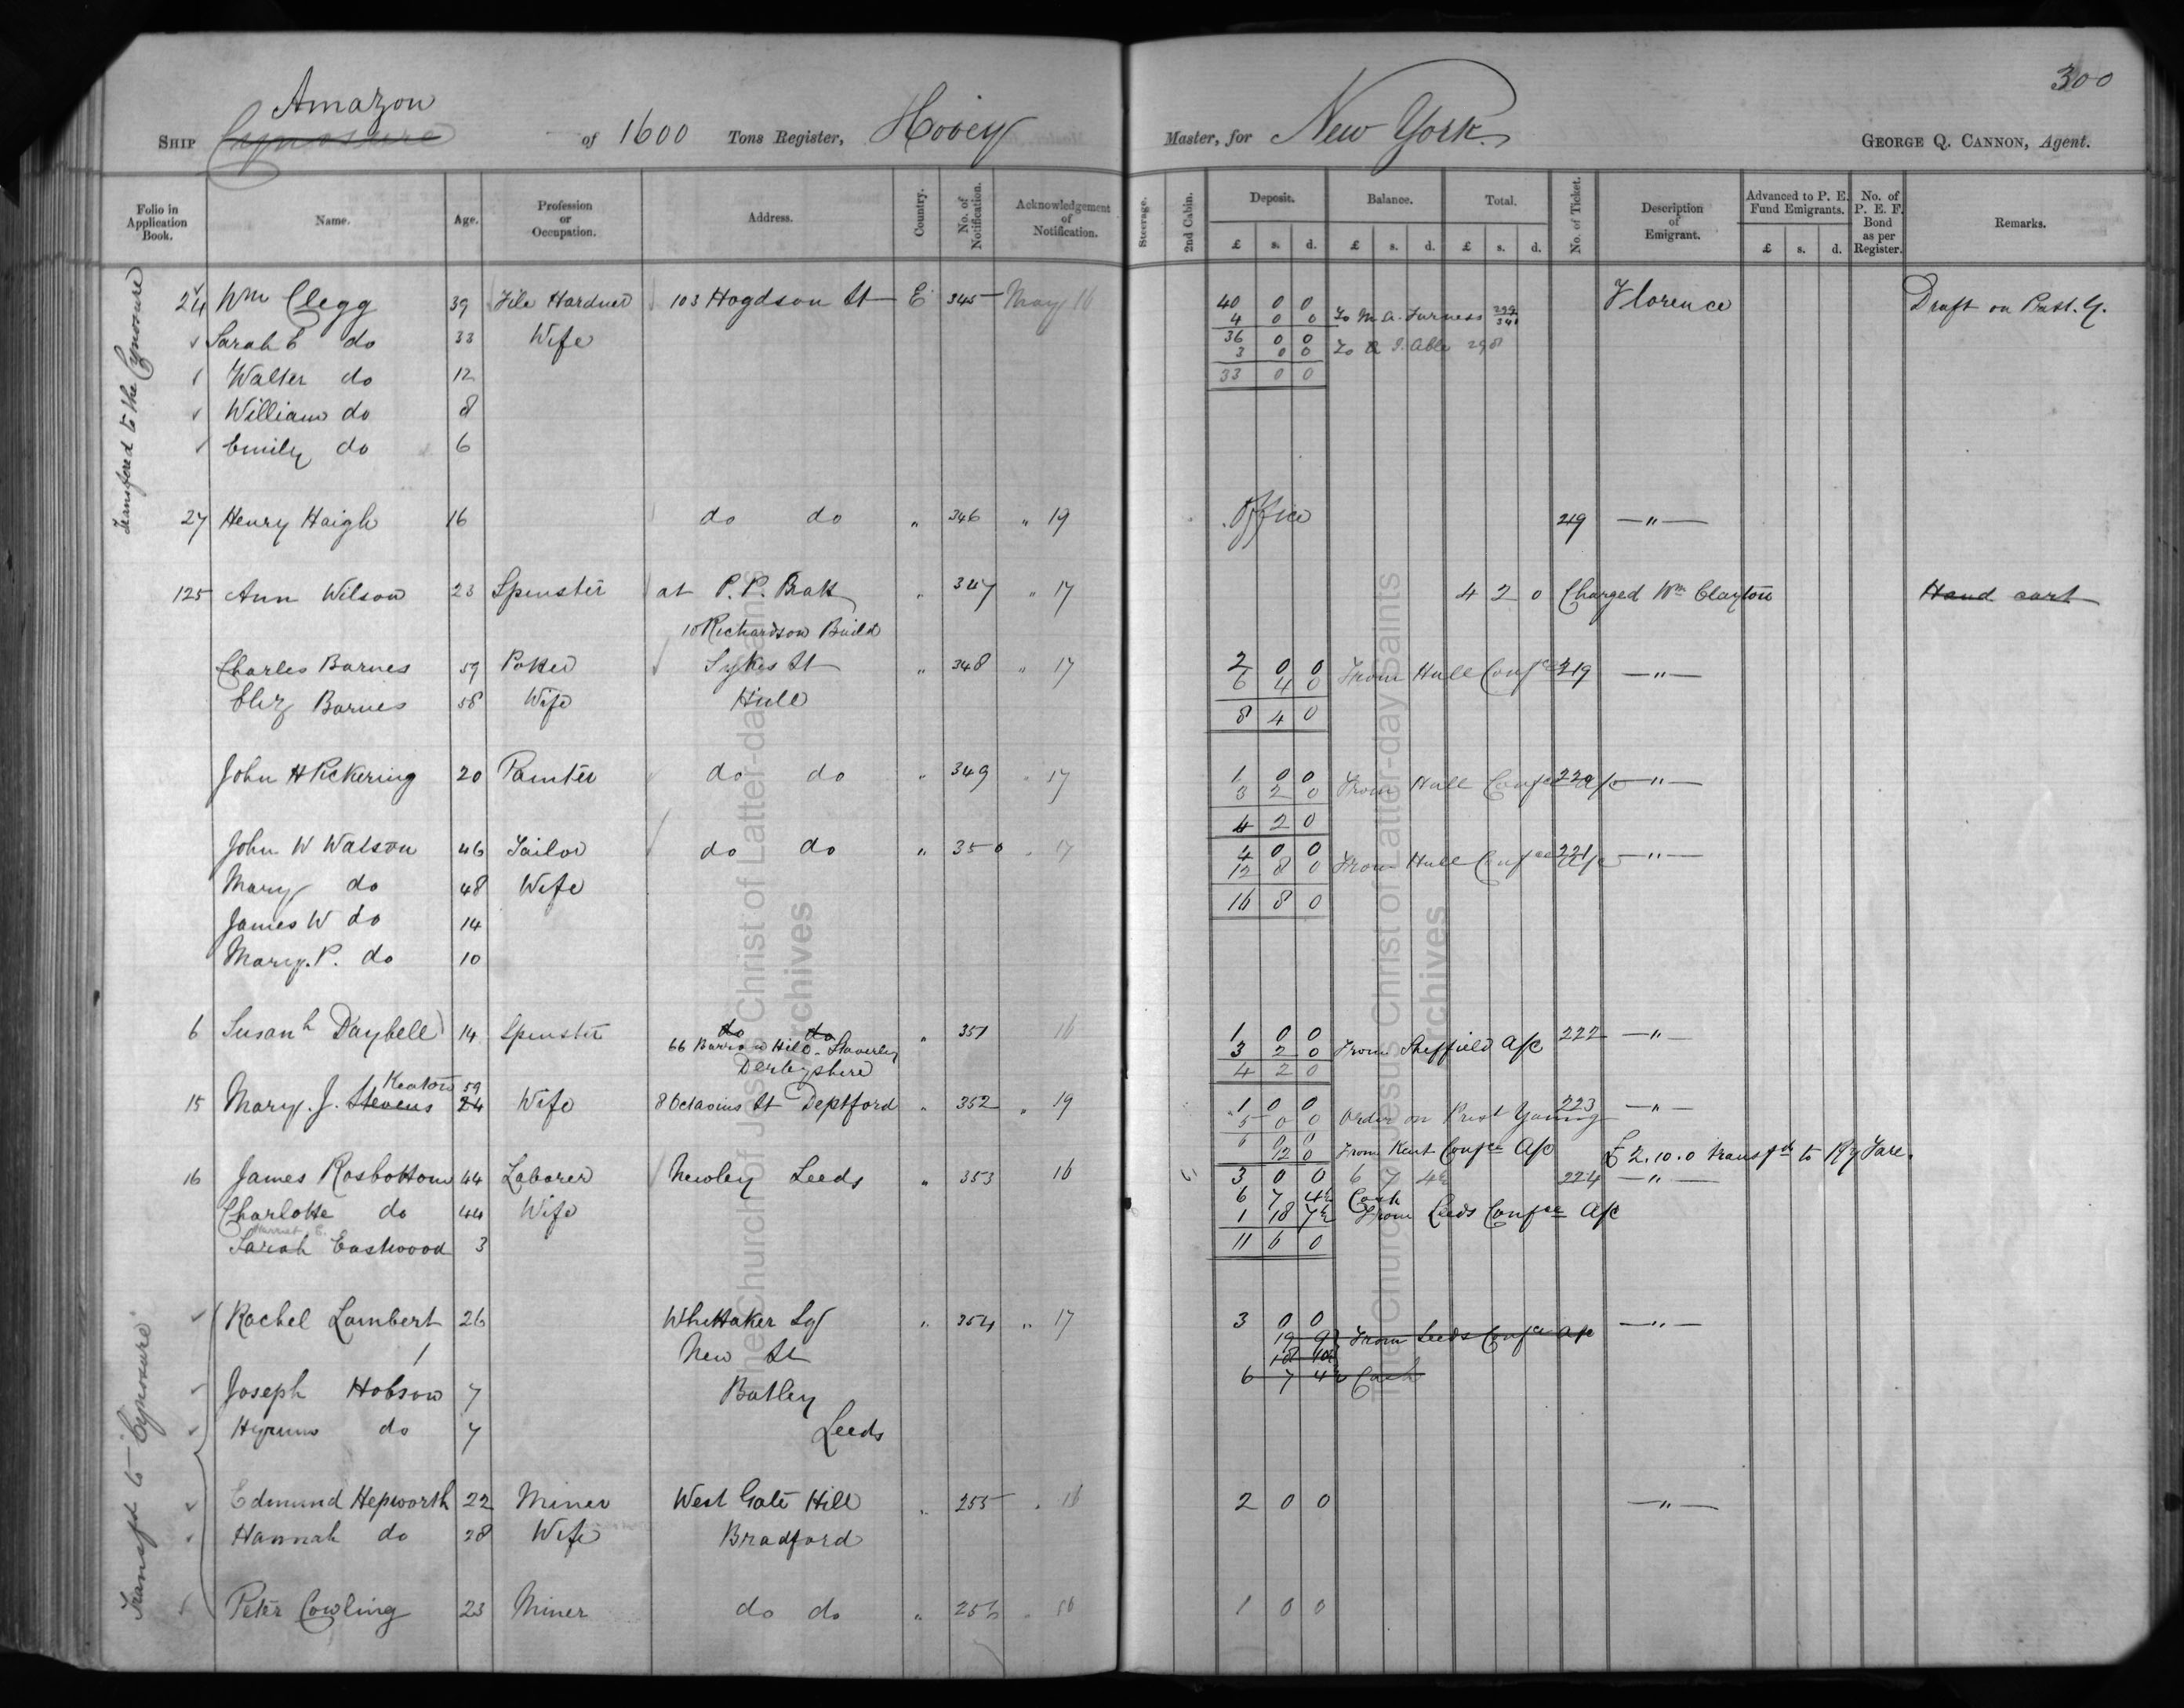 300
Amazon
SHIP Cynosure of 1600 Tons Register, Hovey Master, for New York. GEORGE Q. CANNON, Agent.
Folio in Application Book. Name. Age. Profession or Occupation. Address. Country. No. of Notification. Acknowledgement of Notification. Steerage. 2nd Cabin. Deposit. Balance. Total. No. of Ticket. Description of Emigrant. Advanced to P. E. Fund Emigrants. No. of P. E. F. Bond as per Register. Remarks.
£ s. d. £ s. d. £ s. d. £ s. d.
Transfered to the Cynosure
24 Wm Clegg 39 File Hardner 103 Hogdson St E 345 May 16 40 0 0 Florence Draft on Prest. Y.
4 0 0 To M A. Furness 299 341
Sarah E do 33 Wife 36 0 0
3 0 0 To 298
Walter do 12 33 0 0
William do 8
Emily do 6
27 Henry Haigh 16 do do " 346 " 19 Office 219 — " —
125 Ann Wilson 23 Spinster at P. P. Pratt " 347 " 17 4 2 0 Charged Wm Clayton Hand cart
10 Richardson Build
Charles Barnes 59 Potter Sykes St " 348 " 17 2 0 0 — " —
6 4 0 From Hull Confce 219
Eliz Barnes 58 Wife Hull 8 4 0
John H Pickering 20 Painter do do " 349 " 17 1 0 0 — " —
3 2 0 From Hull Confce 220 a/c
4 2 0
John W Watson 46 Tailor do do " 350 " 17 4 0 0 221 — " —
12 8 0 From Hull Confce a/c
Mary do 48 Wife 16 8 0
James W do 14
Mary. P. do 10
6 Susanh Daybell 14 Spinster do do " 351 16 1 0 0 222 — " —
66 Barrow Hill. Staveley 3 2 0 From Sheffield A/c
Derbyshire 4 2 0
Keaton 59
15 Mary. J. Stevens 24 Wife 8 Octavius St Deptford " 352 " 19 1 0 0 223 — " —
5 0 0 Order on Prest Young
6 0 0
12 0 From Kent Confce A/c £2.10.0 transfd to Ry Fare.
16 James Rosbottom 44 Laborer Newley Leeds " 353 16 3 0 0 6 7 4½ 224 — " —
6 7 4½ Cash
Charlotte do 44 Wife 1 18 7½ From Leeds Confce A/c
Harriet E.
Sarah Eastwood 3 11 6 0
Transfd to Cynosure
Rachel Lambert 26 Whittaker Sq " 354 " 17 3 0 0 — " —
19 9 From Leeds Confce A/c
New St
6 7 4½ Cash
Joseph Hobson 7 Batley
Hyrum do 7 Leeds
Edmund Hepworth 22 Miner West Gate Hill " 255 " 16 2 0 0 — " —
Hannah do 28 Wife Bradford
Peter Cowling 23 Miner do do " 256 " 16 1 0 0
The Church of Jesus Christ of Latter-day Saints
Archives
The Church of Jesus Christ of Latter-day Saints
Archives